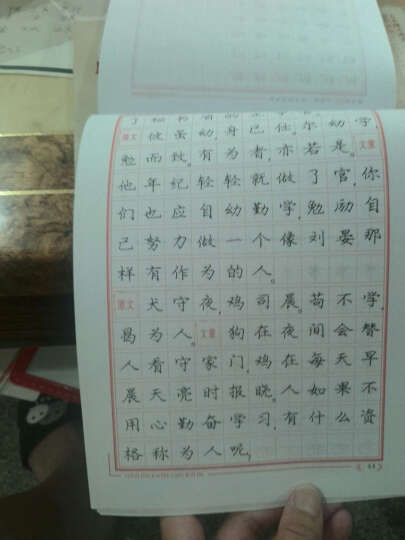 原文 彼虽幼,身已仕,尔幼学,
勉而致。有为者,亦若是。文意
他年纪轻轻就做了官,你
们也应自幼勤学,勉励自
己努力做一个像刘晏那
样有作为的人。
原文 犬守夜,鸡司晨。苟不学,
曷为人。文意 狗在夜间会替
人看守家门,鸡在每天早
晨天亮时报晓。人如果不
用心勤奋学习,有什么资
格称为人呢,
44